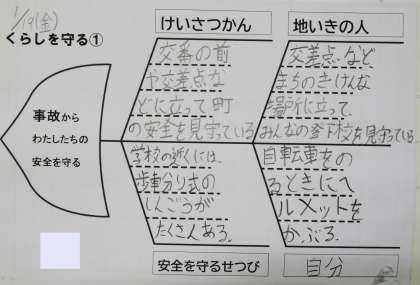 1/19(金)
くらしを守る①
けいさつかん
地いきの人
交番の前
や交差点な
どに立って町
の安全を見守っている
交差点など
まちのきけんな
場所に立って
みんなの登下校を見守っている。
事故から
わたしたちの
安全を守る
学校の近くには、
歩車分り式の
しんごうが
たくさんある。
自転車をの
るときにヘ
ルメットを
かぶる。
安全を守るせつび
自分